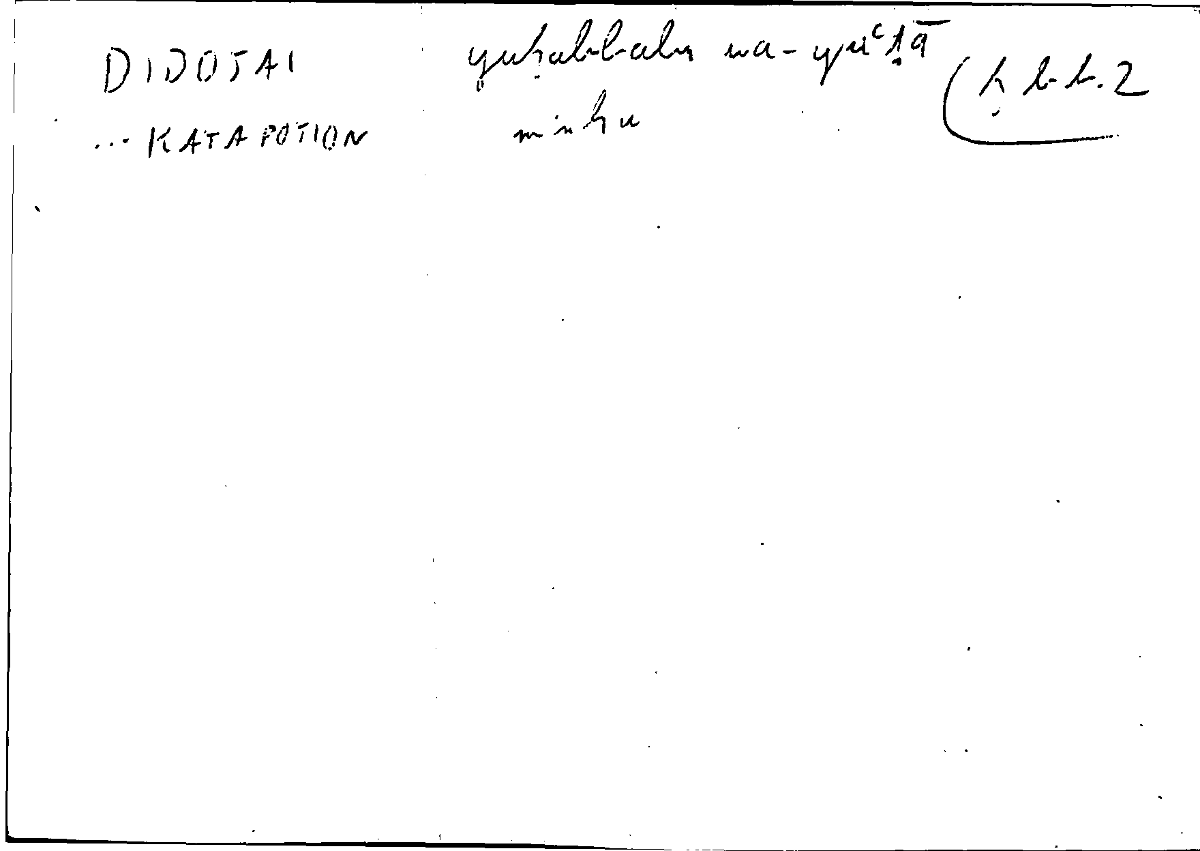 DIDOTAI yuḥabbabu wa-yuʿṭā (ḥ b b. 2
... KATAPOTION minhu